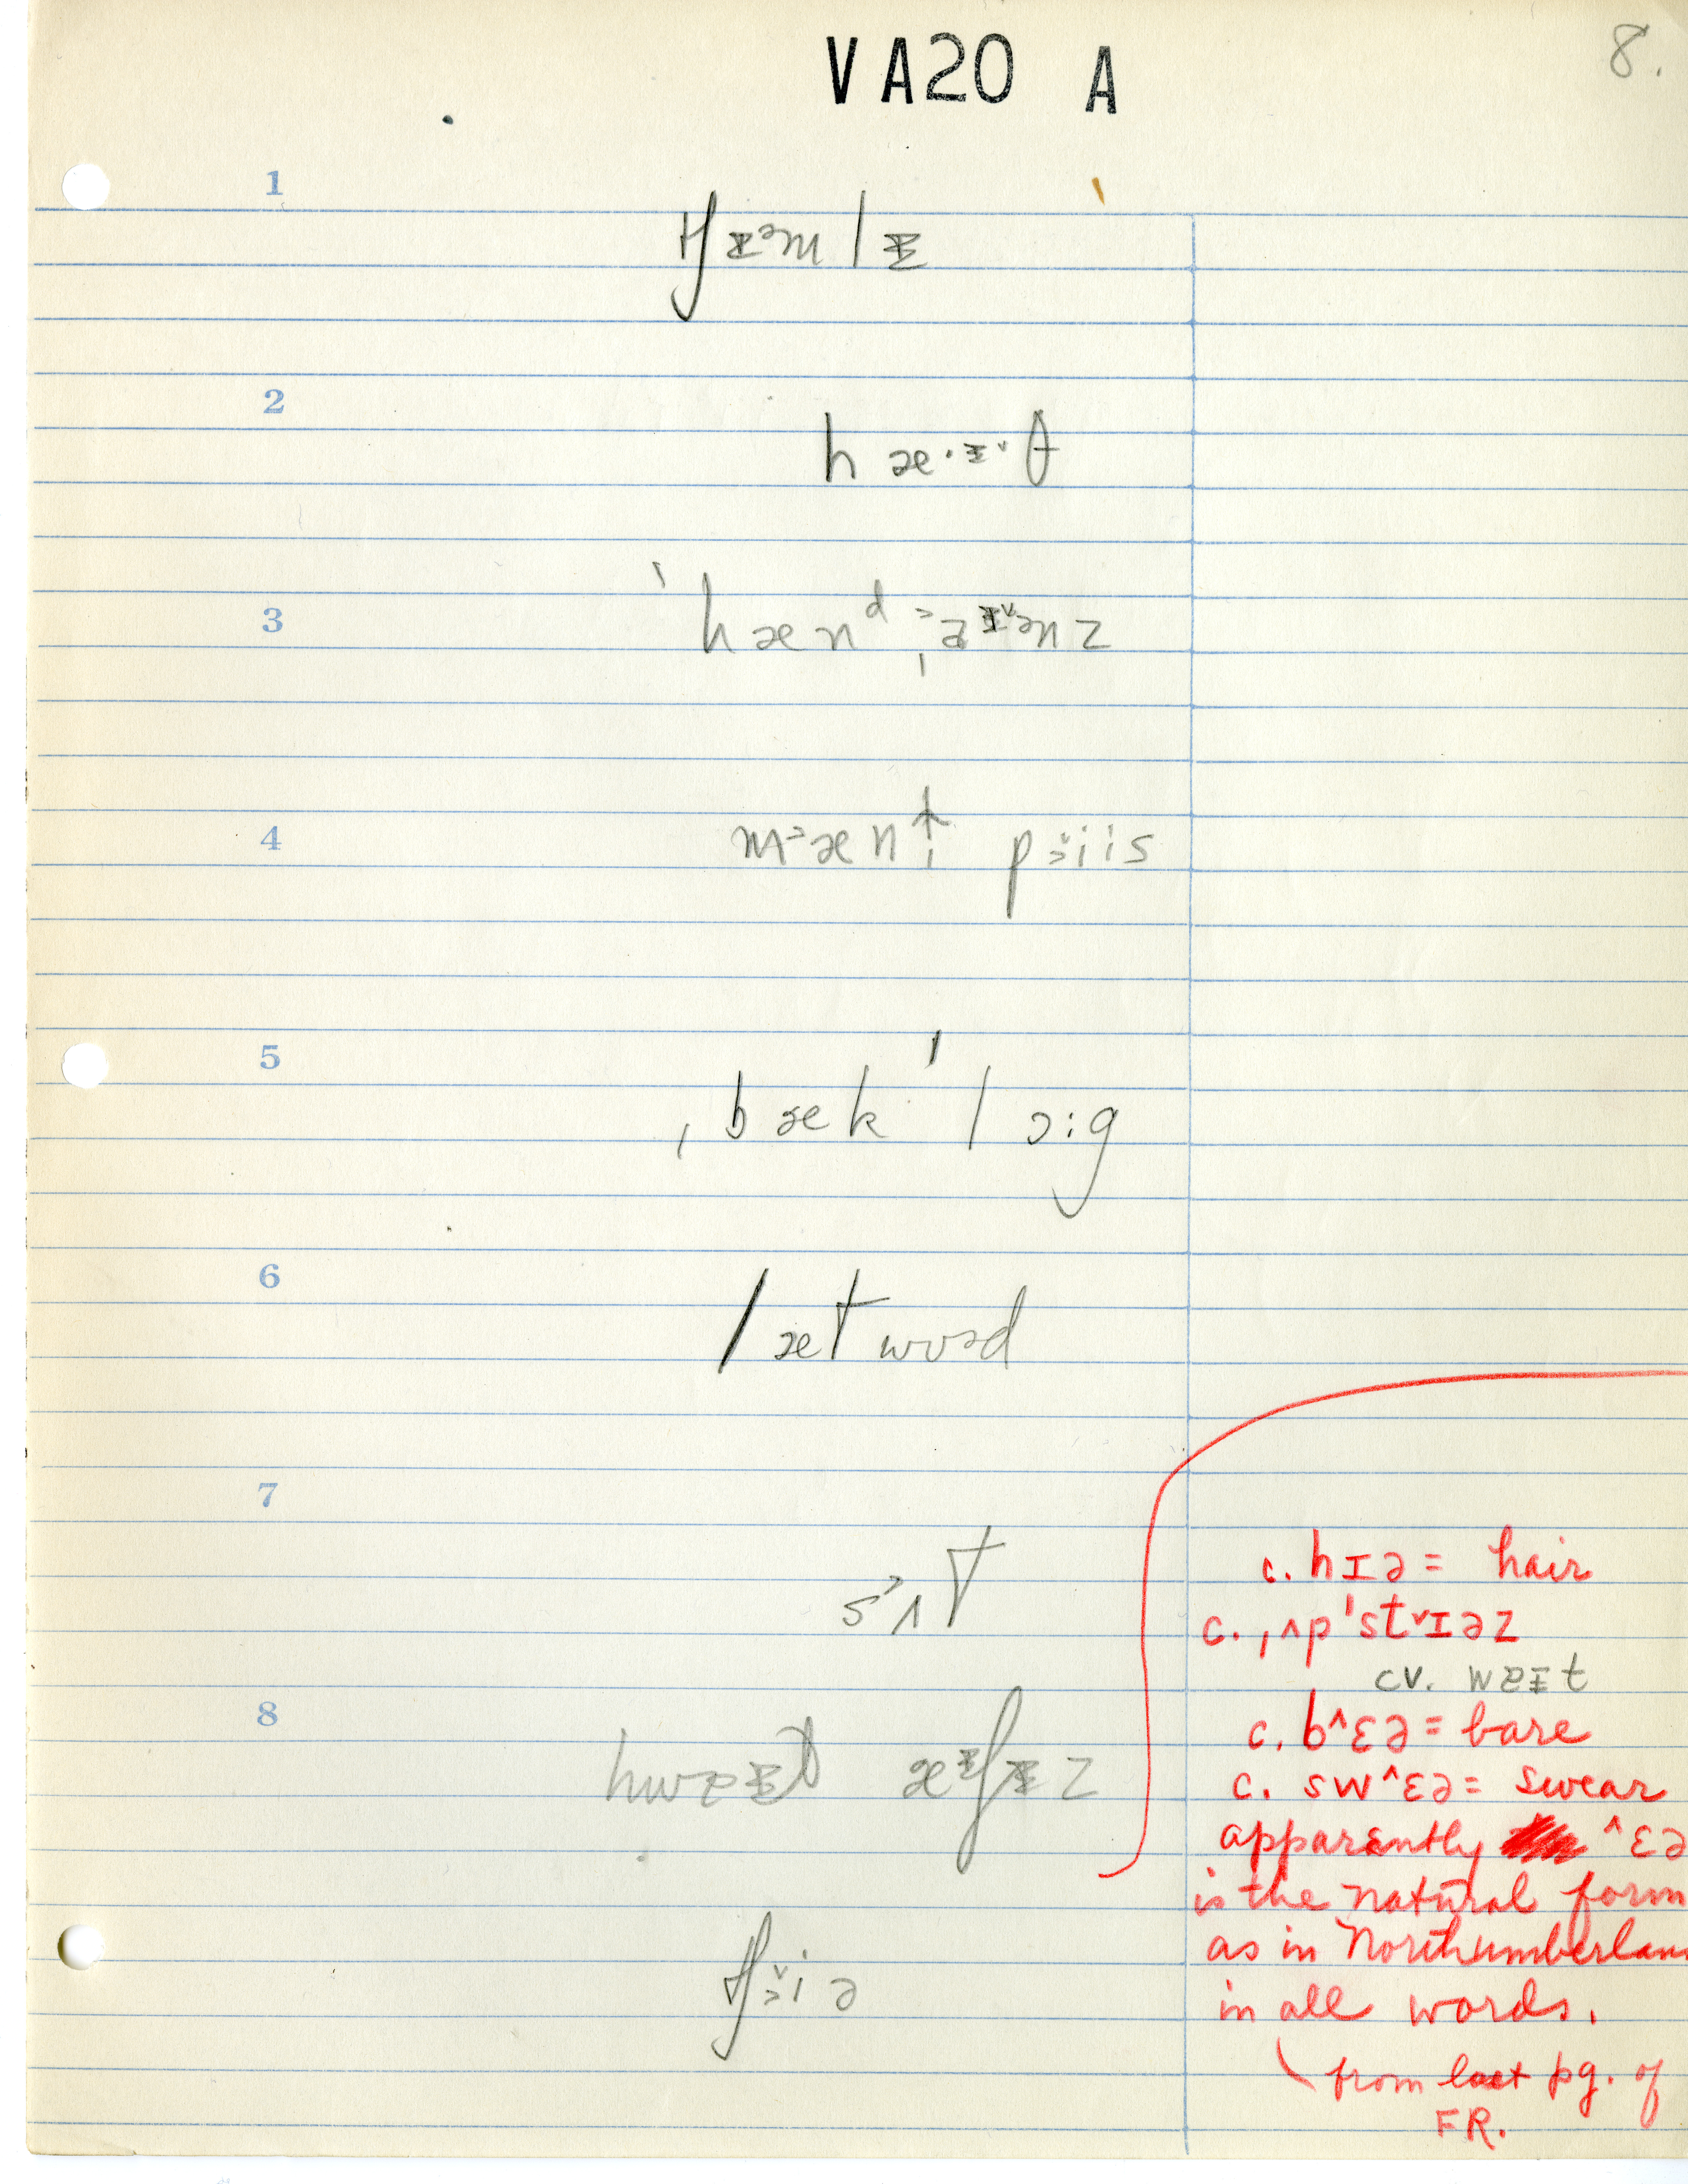 VA20 A
8.
1
tʃɪᵊm lɪ
2
hæ·ɪ˅·θ
3
ˈhænᵈ ˌɐɪənz
4
mæn↑ piis
5
ˌbækˈlɔig
6
lætwʊəd
7
sʌt
8
hwɐɪt æʃɪz
tʃiə
c. hɪə = hair
c. ˌʌpˈst˅ɪəz
cv. wɐɪt
c. b^ɛə = bare
c. sw^ɛə = swear
apparently ^ɛə
is the natural form
as in Northumberland
in all words.
from last pg. of
FR.